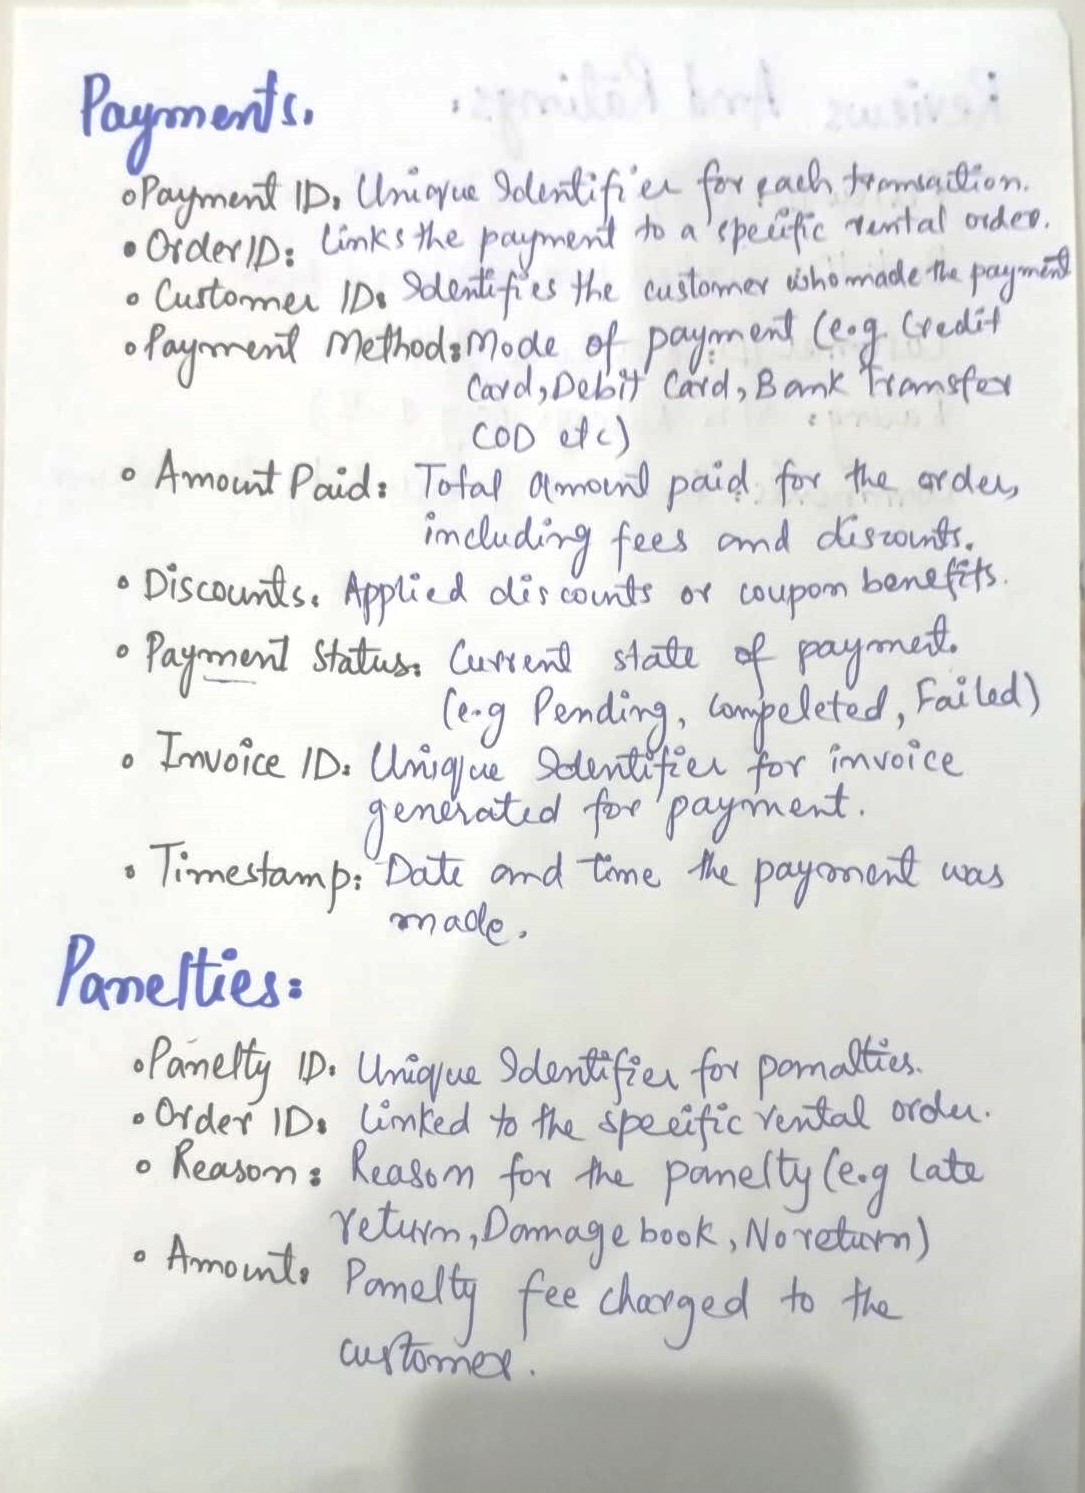 Payments:
Payment ID: Unique Identifier for each transaction.
Order ID: Links the payment to a specific rental order.
Customer ID: Identifies the customer who made the payment
Payment Method: Mode of payment (e.g Credit
Card, Debit Card, Bank Transfer
COD etc)
Amount Paid: Total amount paid for the order,
including fees and discounts.
Discounts: Applied discounts or coupon benefits.
Payment Status: Current state of payment.
(e.g Pending, Compeleted, Failed)
Invoice ID: Unique Identifier for invoice
generated for payment.
Timestamp: Date and time the payment was
made.
Panelties:
Panelty ID: Unique Identifier for panalties.
Order ID: Linked to the specific rental order.
Reason: Reason for the panelty (e.g Late
return, Damage book, No return)
Amount: Panelty fee charged to the
customer.